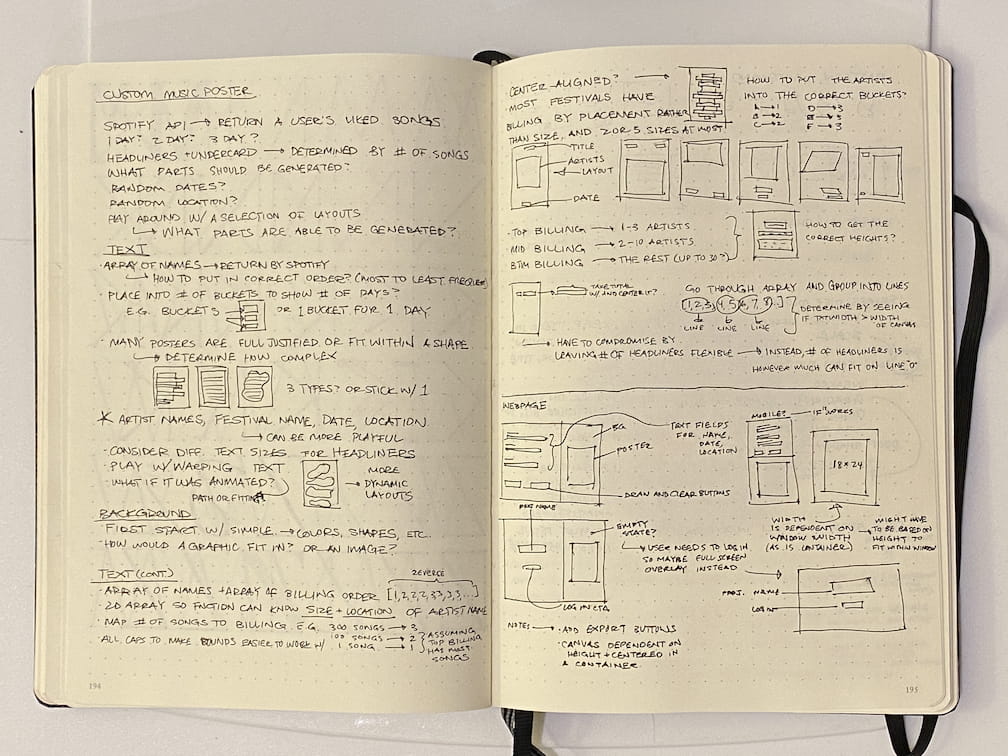 CUSTOM MUSIC POSTER
SPOTIFY API → RETURN A USER'S LIKED SONGS
1 DAY? 2 DAY? 3 DAY?
HEADLINERS + UNDERCARD → DETERMINED BY # OF SONGS
WHAT PARTS SHOULD BE GENERATED?
RANDOM DATES?
RANDOM LOCATION?
PLAY AROUND W/ A SELECTION OF LAYOUTS
↳ WHAT PARTS ARE ABLE TO BE GENERATED?
TEXT
· ARRAY OF NAMES → RETURN BY SPOTIFY
↳ HOW TO PUT IN CORRECT ORDER? (MOST TO LEAST FREQUENT)
· PLACE INTO # OF BUCKETS TO SHOW # OF DAYS?
E.G. BUCKETS OR 1 BUCKET FOR 1 DAY
· MANY POSTERS ARE FULL JUSTIFIED OR FIT WITHIN A SHAPE
↳ DETERMINE HOW COMPLEX
3 TYPES? OR STICK W/ 1
* ARTIST NAMES, FESTIVAL NAME, DATE, LOCATION
↳ CAN BE MORE PLAYFUL
· CONSIDER DIFF. TEXT SIZES FOR HEADLINERS
· PLAY W/ WARPING TEXT
· WHAT IF IT WAS ANIMATED?
PATH OR FITTING
→ MORE
DYNAMIC
LAYOUTS
BACKGROUND
· FIRST START W/ SIMPLE → COLORS, SHAPES, ETC.
· HOW WOULD A GRAPHIC FIT IN? OR AN IMAGE?
TEXT (CONT.)
REVERSE
· ARRAY OF NAMES + ARRAY OF BILLING ORDER [1,2,2,2,3,3,3,3...]
· 2D ARRAY SO FNCTION CAN KNOW SIZE + LOCATION OF ARTIST NAME
· MAP # OF SONGS TO BILLING. E.G. 300 SONGS → 3
100 SONGS → 2
1 SONG → 1
ASSUMING
TOP BILLING
HAS MOST
SONGS
· ALL CAPS TO MAKE BOUNDS EASIER TO WORK W/
194
· CENTER-ALIGNED?
· MOST FESTIVALS HAVE
BILLING BY PLACEMENT RATHER
THAN SIZE, AND 2 OR 3 SIZES AT MOST
HOW TO PUT THE ARTISTS
INTO THE CORRECT BUCKETS?
A → 1 D → 3
B → 2 E → 3
C → 2 F → 3
TITLE
ARTISTS
LAYOUT
DATE
· TOP BILLING → 1-3 ARTISTS
· MID BILLING → 2-10 ARTISTS
· BTM BILLING → THE REST (UP TO 30?)
HOW TO GET THE
CORRECT HEIGHTS?
TAKE TOTAL
W/ AND CENTER IT?
GO THROUGH ARRAY AND GROUP INTO LINES
[1,2,3,4,5,6,7,8...]
LINE LINE LINE
DETERMINE BY SEEING
IF TXTWIDTH > WIDTH
OF CANVAS
↳ HAVE TO COMPROMISE BY
LEAVING # OF HEADLINERS FLEXIBLE → INSTEAD, # OF HEADLINERS IS
HOWEVER MUCH CAN FIT ON LINE "0"
WEBPAGE
BG
POSTER
TEXT FIELDS
FOR NAME,
DATE,
LOCATION
DRAW AND CLEAR BUTTONS
MOBILE? → IF WORKS
18×24
WIDTH
IS DEPENDENT ON
WINDOW WIDTH
(AS IS CONTAINER)
→ MIGHT HAVE
TO BE BASED ON
HEIGHT TO
FIT WITHIN WINDOW
NAME
EMPTY
STATE?
↳ USER NEEDS TO LOG IN,
SO MAYBE FULL SCREEN
OVERLAY INSTEAD
LOG IN CTA
PROJ. NAME
LOG IN
NOTES → · ADD EXPORT BUTTONS
· CANVAS DEPENDENT ON
HEIGHT + CENTERED IN
A CONTAINER
195